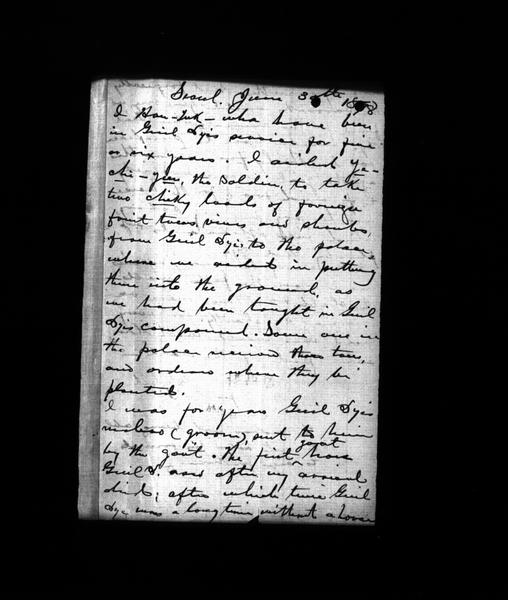 Seoul. June 30th 1898
I Han-Tuk- who have been
in Genl Dyes service for five
or six years. I assisted Ye-
chi-, the soldier, to take
two chiky loads of foreign
fruit trees, vines and shrubs,
from Genl Dye, to the palace,
where we assisted in putting
them into the ground, as
we had been taught in Genl
Dyes compound. Some one in
the palace received them too,
and orders where they be
planted.
I was for years Genl Dyes
(groom), sent to him
by the govt. The first govt horse
Genl D. after my arrival
died; after which time Genl
Dye was a long time without a horse